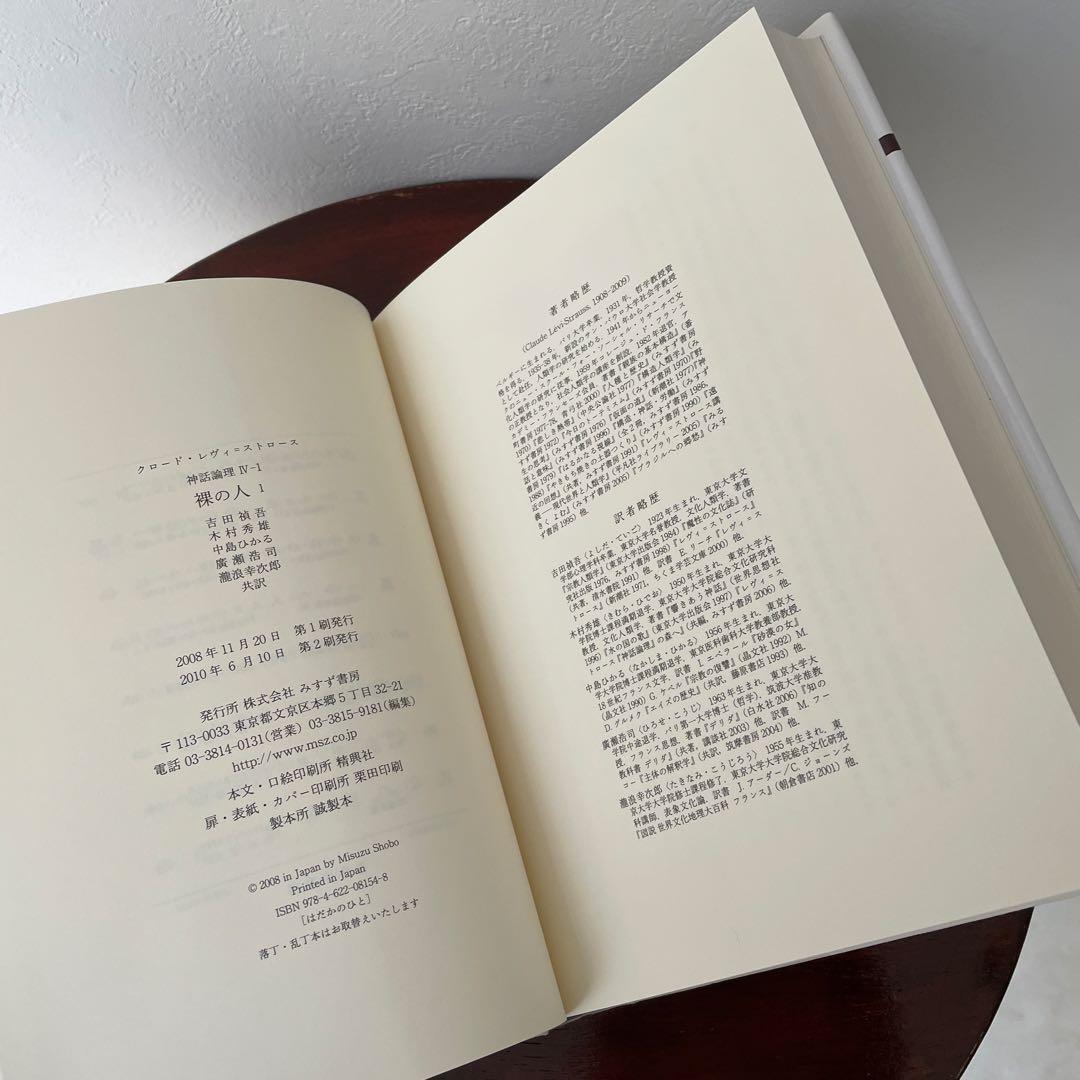 クロード・レヴィ=ストロース
神話論理 Ⅳ-1
裸の人 1
吉田禎吾
木村秀雄
中島ひかる
廣瀬浩司
瀧浪幸次郎
共訳
2008年11月20日 第1刷発行
2010年6月10日 第2刷発行
発行所 株式会社 みすず書房
〒113-0033 東京都文京区本郷5丁目32-21
電話 03-3814-0131(営業) 03-3815-9181(編集)
http://www.msz.co.jp
本文・口絵印刷所 精興社
扉・表紙・カバー印刷所 栗田印刷
製本所 誠製本
© 2008 in Japan by Misuzu Shobo
Printed in Japan
ISBN 978-4-622-08154-8
[はだかのひと]
落丁・乱丁本はお取替えいたします
著者略歴
(Claude Lévi-Strauss, 1908-2009)
ベルギーに生まれる．パリ大学卒業．1931年，哲学教授資
格を得る．1935-38年，新設のサン・パウロ大学社会学教授
として赴任，人類学の研究を始める．1941年からニューヨー
クのニュー・スクール・フォー・ソーシャル・リサーチで文
化人類学の研究に従事．1959年コレージュ・ド・フランス
の正教授となり，社会人類学の講座を創設．1982年退官．ア
カデミー・フランセーズ会員．著書『親族の基本構造』(番
町書房1977-78，青弓社2000)『人種と歴史』(みすず書房
1970)『悲しき熱帯』(中央公論社1977)『構造人類学』(み
すず書房1972)『今日のトーテミスム』(みすず書房1970)『野
生の思考』(みすず書房1976)『仮面の道』(新潮社1977)『神
話と意味』(みすず書房1996)『構造・神話・労働』(みすず
書房1979)『はるかなる視線』(全2冊，みすず書房1986，
1988)『やきもち焼きの土器つくり』(みすず書房1990)『遠
近の回想』(共著，みすず書房1991)『レヴィ=ストロース講
義――現代世界と人類学』(平凡社ライブラリー2005)『みる
きく よむ』(みすず書房2005)『ブラジルへの郷愁』(みす
ず書房1995)他．
訳者略歴
吉田禎吾〈よしだ・ていご〉1923年生まれ．東京大学文
学部心理学科卒業．東京大学名誉教授．文化人類学．著書
『宗教人類学』(東京大学出版会1984)『魔性の文化誌』(研
究社出版1976，みすず書房1998)『レヴィ=ストロース』
(共著，清水書院1991)他．訳書 E. リーチ『レヴィ=ス
トロース』(新潮社1971，ちくま学芸文庫2000)他．
木村秀雄〈きむら・ひでお〉1950年生まれ．東京大学大
学院博士課程満期退学．東京大学大学院総合文化研究科
教授．文化人類学．著書『響きあう神話』(世界思想社
1996)『水の国の歌』(東京大学出版会1997)『レヴィ=ス
トロース『神話論理』の森へ』(共編，みすず書房2006)他．
中島ひかる〈なかしま・ひかる〉1956年生まれ．東京大
学大学院博士課程満期退学．東京医科歯科大学教養部教授．
18世紀フランス文学．訳書 J. エベラール『砂漠の女』
(晶文社1990) G. ケペル『宗教の復讐』(晶文社1992) M.
D. グルメク『エイズの歴史』(共訳，藤原書店1993)他．
廣瀬浩司〈ひろせ・こうじ〉1963年生まれ．東京大学大
学院中途退学．パリ第一大学博士(哲学)．筑波大学准教
授．フランス思想．著書『デリダ』(白水社2006)『知の
教科書 デリダ』(共著，講談社2003)他．訳書 M. フー
コー『主体の解釈学』(共訳，筑摩書房2004)他．
瀧浪幸次郎〈たきなみ・こうじろう〉1955年生まれ．東
京大学大学院修士課程修了．東京大学大学院総合文化研究
科講師．表象文化論．訳書 J. アーダー/C. ジョーンズ
『図説 世界文化地理大百科 フランス』(朝倉書店2001)他．